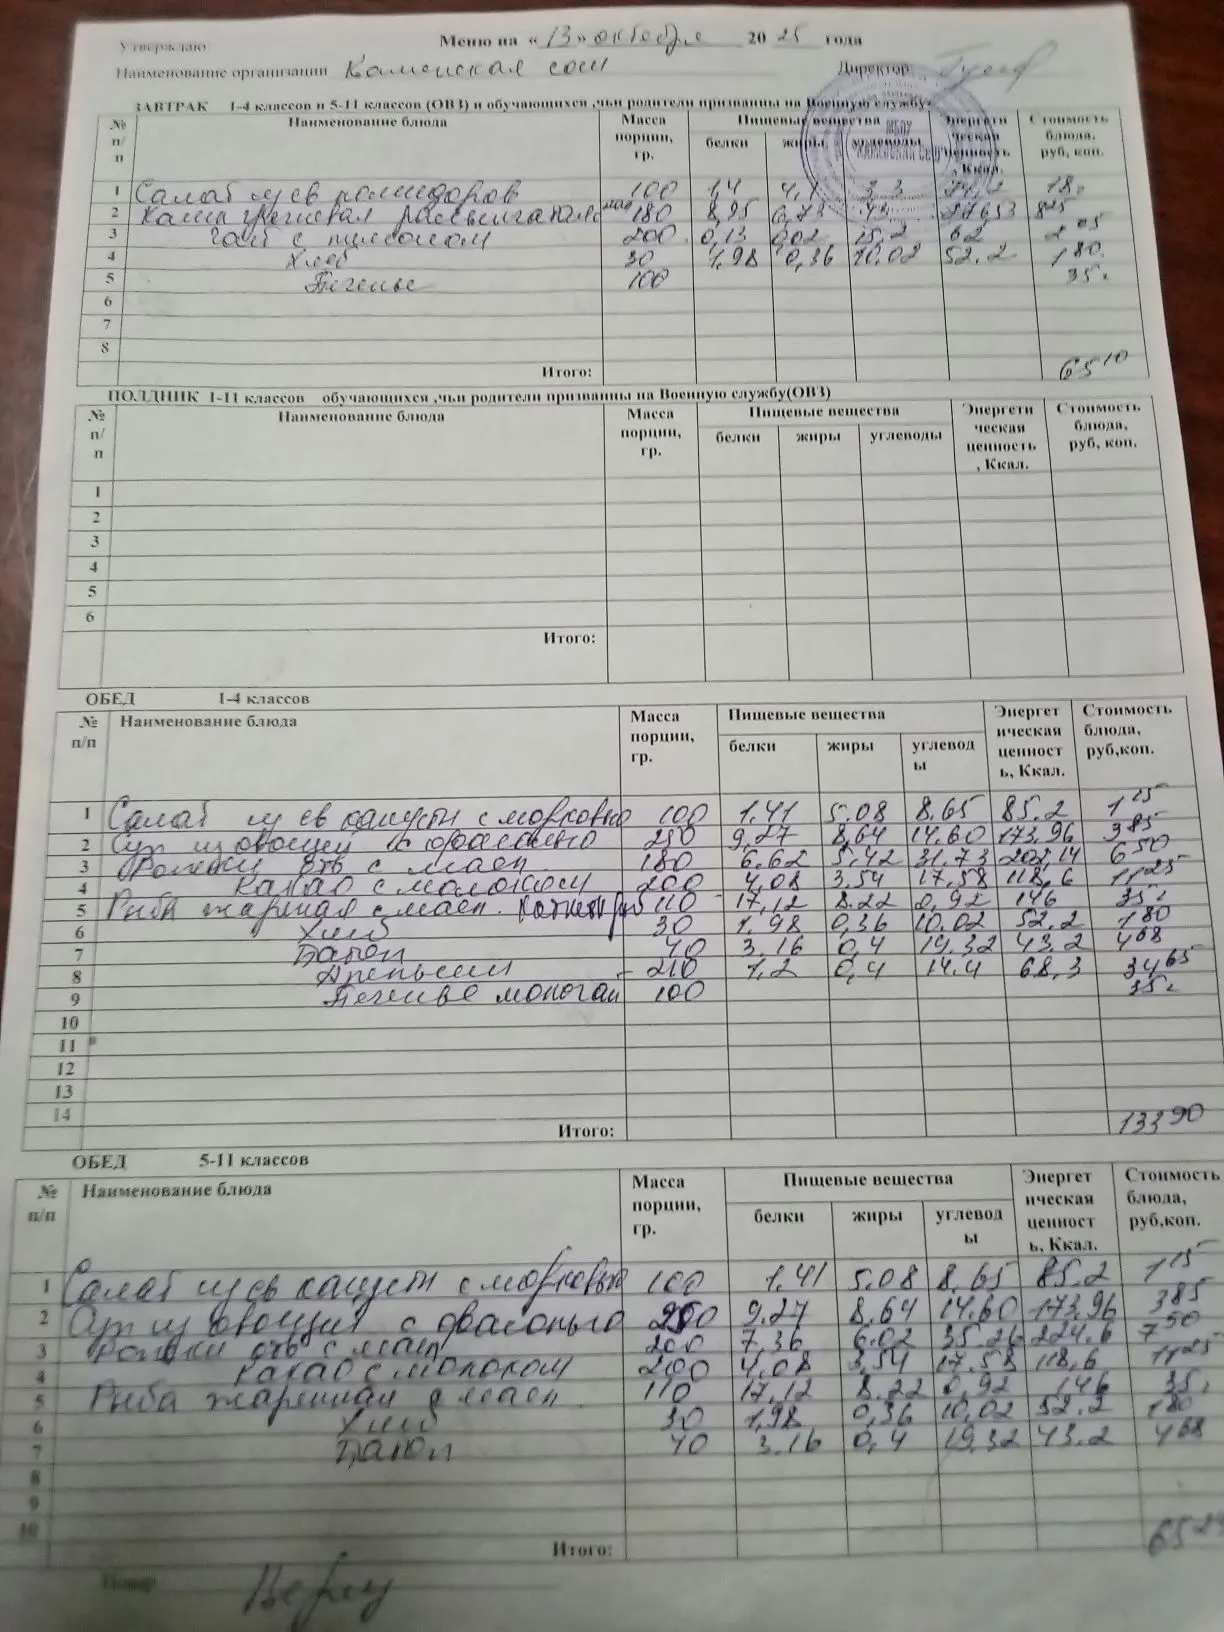 Утверждаю
Меню на «13» октября 2025 года
Наименование организации Каменская сош Директор
МБОУ
ЗАВТРАК 1-4 классов и 5-11 классов (ОВЗ) и обучающихся ,чьи родители призванны на Военную службу.
№ п/п Наименование блюда Масса порции, гр. Пищевые вещества белки жиры, углеводы Энергетическая ценность, Ккал. Стоимость блюда, руб, коп.
1 Салат из св помидоров 100 1,4 4,1 3,3 18.
2 Каша гречневая рассыпчатая 180 8,95 6,73 8 25
3 Чай с 200 0,13 0,02 15,2 62 2 05
4 Хлеб 30 1,98 0,36 10,02 52.2 1 80.
5 Печенье 100 35.
6
7
8
Итого: 65 10
ПОЛДНИК 1-11 классов обучающихся ,чьи родители призванны на Военную службу(ОВЗ)
№ п/п Наименование блюда Масса порции, гр. Пищевые вещества белки жиры углеводы Энергетическая ценность, Ккал. Стоимость блюда, руб, коп.
1
2
3
4
5
6
Итого:
ОБЕД 1-4 классов
№ п/п Наименование блюда Масса порции, гр. Пищевые вещества белки жиры углеводы Энергетическая ценность, Ккал. Стоимость блюда, руб,коп.
1 Салат из св капусты с морковью 100 1,41 5.08 8.65 85.2 1 15
2 Суп из овощей с фасолью 250 9,27 8,64 14,60 173,96 3 85
3 Рожки отв с масл 180 6.62 5.42 31.73 202,14 6 50
4 Какао с молоком 200 4,08 3.54 17.58 118,6 11 25
5 Рыба жареная с масл. 110 17,12 8.22 0,92 146 35.
6 Хлеб 30 1.98 0,36 10.02 52.2 1 80
7 Батон 40 3.16 0,4 19,32 43.2 4 68
8 Апельсин 210 1,2 0,4 14.4 68,3 34 65
9 Печенье 100 35.
10
11
12
13
14
Итого: 133 90
ОБЕД 5-11 классов
№ п/п Наименование блюда Масса порции, гр. Пищевые вещества белки жиры углеводы Энергетическая ценность, Ккал. Стоимость блюда, руб,коп.
1 Салат из св капусты с морковью 100 1.41 5.08 8,65 85.2 1 15
2 Суп из овощей с фасолью 250 9.27 8,64 14.60 173,96 3 85
3 Рожки отв с масл 200 7,36 6.02 35.26 224.6 7 50
4 Какао с молоком 200 4.08 3,54 17.58 118,6 11 25
5 Рыба жаренная с масл. 110 17,12 8.22 0,92 146 35.
6 Хлеб 30 1,98 0,36 10,02 52.2 1 80
7 Батон 40 3.16 0,4 19,32 43.2 4 68
8
9
10
Итого:
Повар